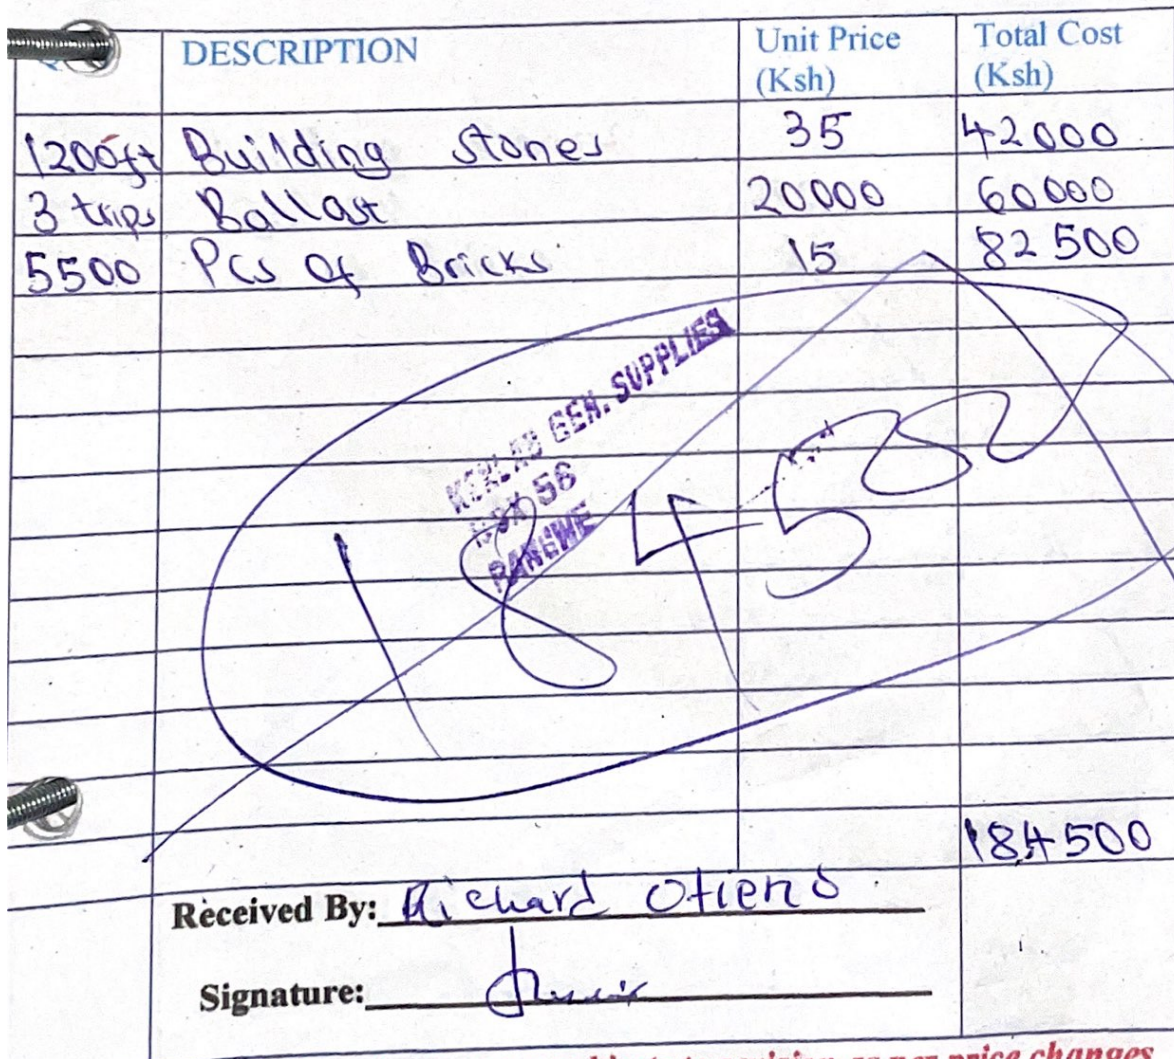 DESCRIPTION Unit Price (Ksh) Total Cost (Ksh)
1200ft Building stones 35 42000
3 trips Ballast 20000 60000
5500 Pcs of Bricks 15 82500
GEN. SUPPLIES
BOX 56
RANGWE
184500
184500
Received By: Richard Otieno
Signature:
as per price changes